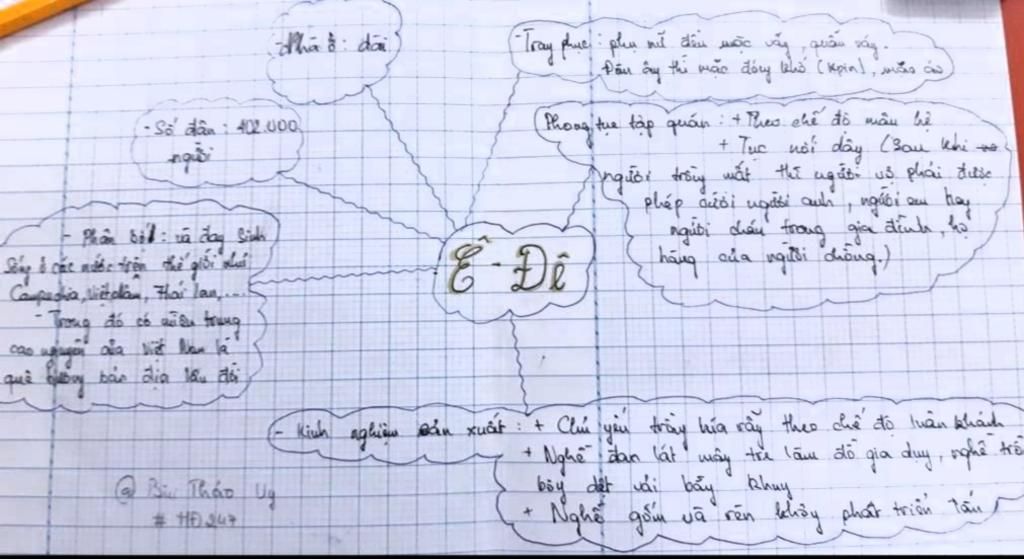 - Nhà ở : dài
- Trang phục : phụ nữ đều mặc váy, quấn váy.
Đàn ông thì mặc đóng khố (kpin), mặc áo
- Số dân : 402.000
người
Phong tục tập quán : + Theo chế độ mẫu hệ
+ Tục nối dây (Sau khi
người chồng mất thì người vợ phải được
phép cưới người anh, người em hay
người cháu trong gia đình, họ
hàng của người chồng.)
Ê - Đê
- Phân bố : sinh
Sống ở các nước trên thế giới như
Campuchia, Việt Nam, Thái Lan,...
- Trong đó có miền trung
cao nguyên của Việt Nam là
quê hương bản địa lâu đời
- Kinh nghiệm sản xuất : + Chủ yếu trồng lúa rẫy theo chế độ luân khánh
+ Nghề đan lát mây tre làm đồ gia dụng, nghề trồ
bông dệt vải bằng khung
+ Nghề gốm và rèn không phát triển lắm
@ Thảo Uy
# HĐ247